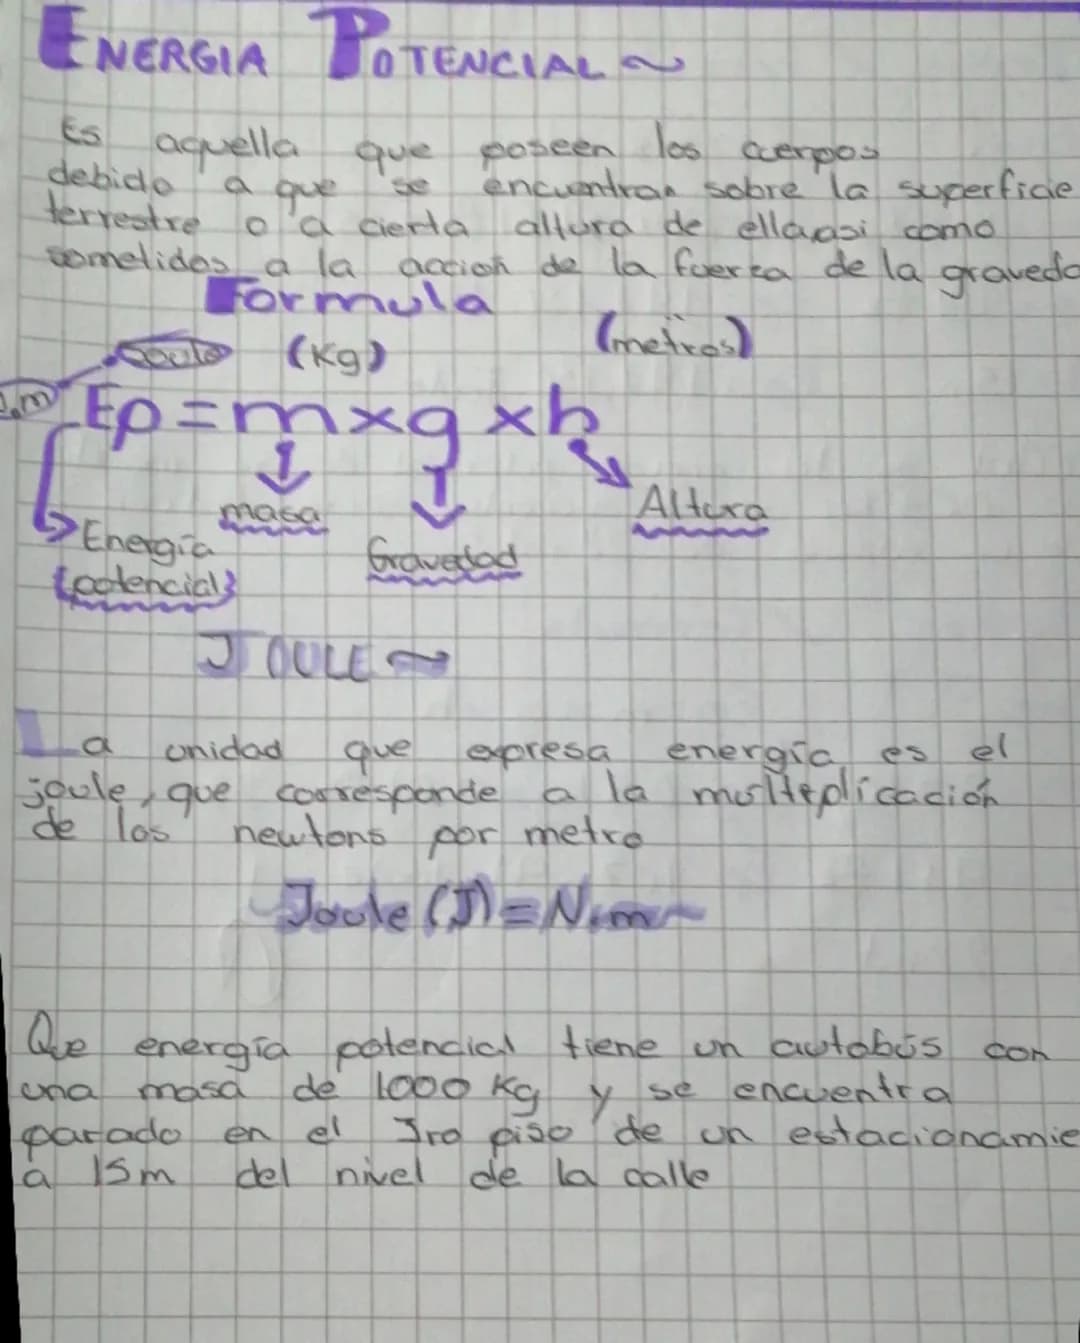 ENERGIA POTENCIAL ~
Es aquella que poseen los cuerpos
debido a que se encuentran sobre la superficie
terrestre o a cierta altura de ellaasi como
sometidos a la accion de la fuerza de la graveda
Formula
Joule (Kg) (metros)
.m Ep=mxgxh
masa
Altura
Energía
Gravedad
(potencial)
JOULE ~
La unidad que expresa energía es el
joule, que corresponde a la multiplicación
de los newtons por metro
Joule (J)=N.m
Que energía potencial tiene un autobús con
una masa de 1000 Kg y se encuentra
parado en el 3ro piso de un estacionamie
a 15m del nivel de la calle